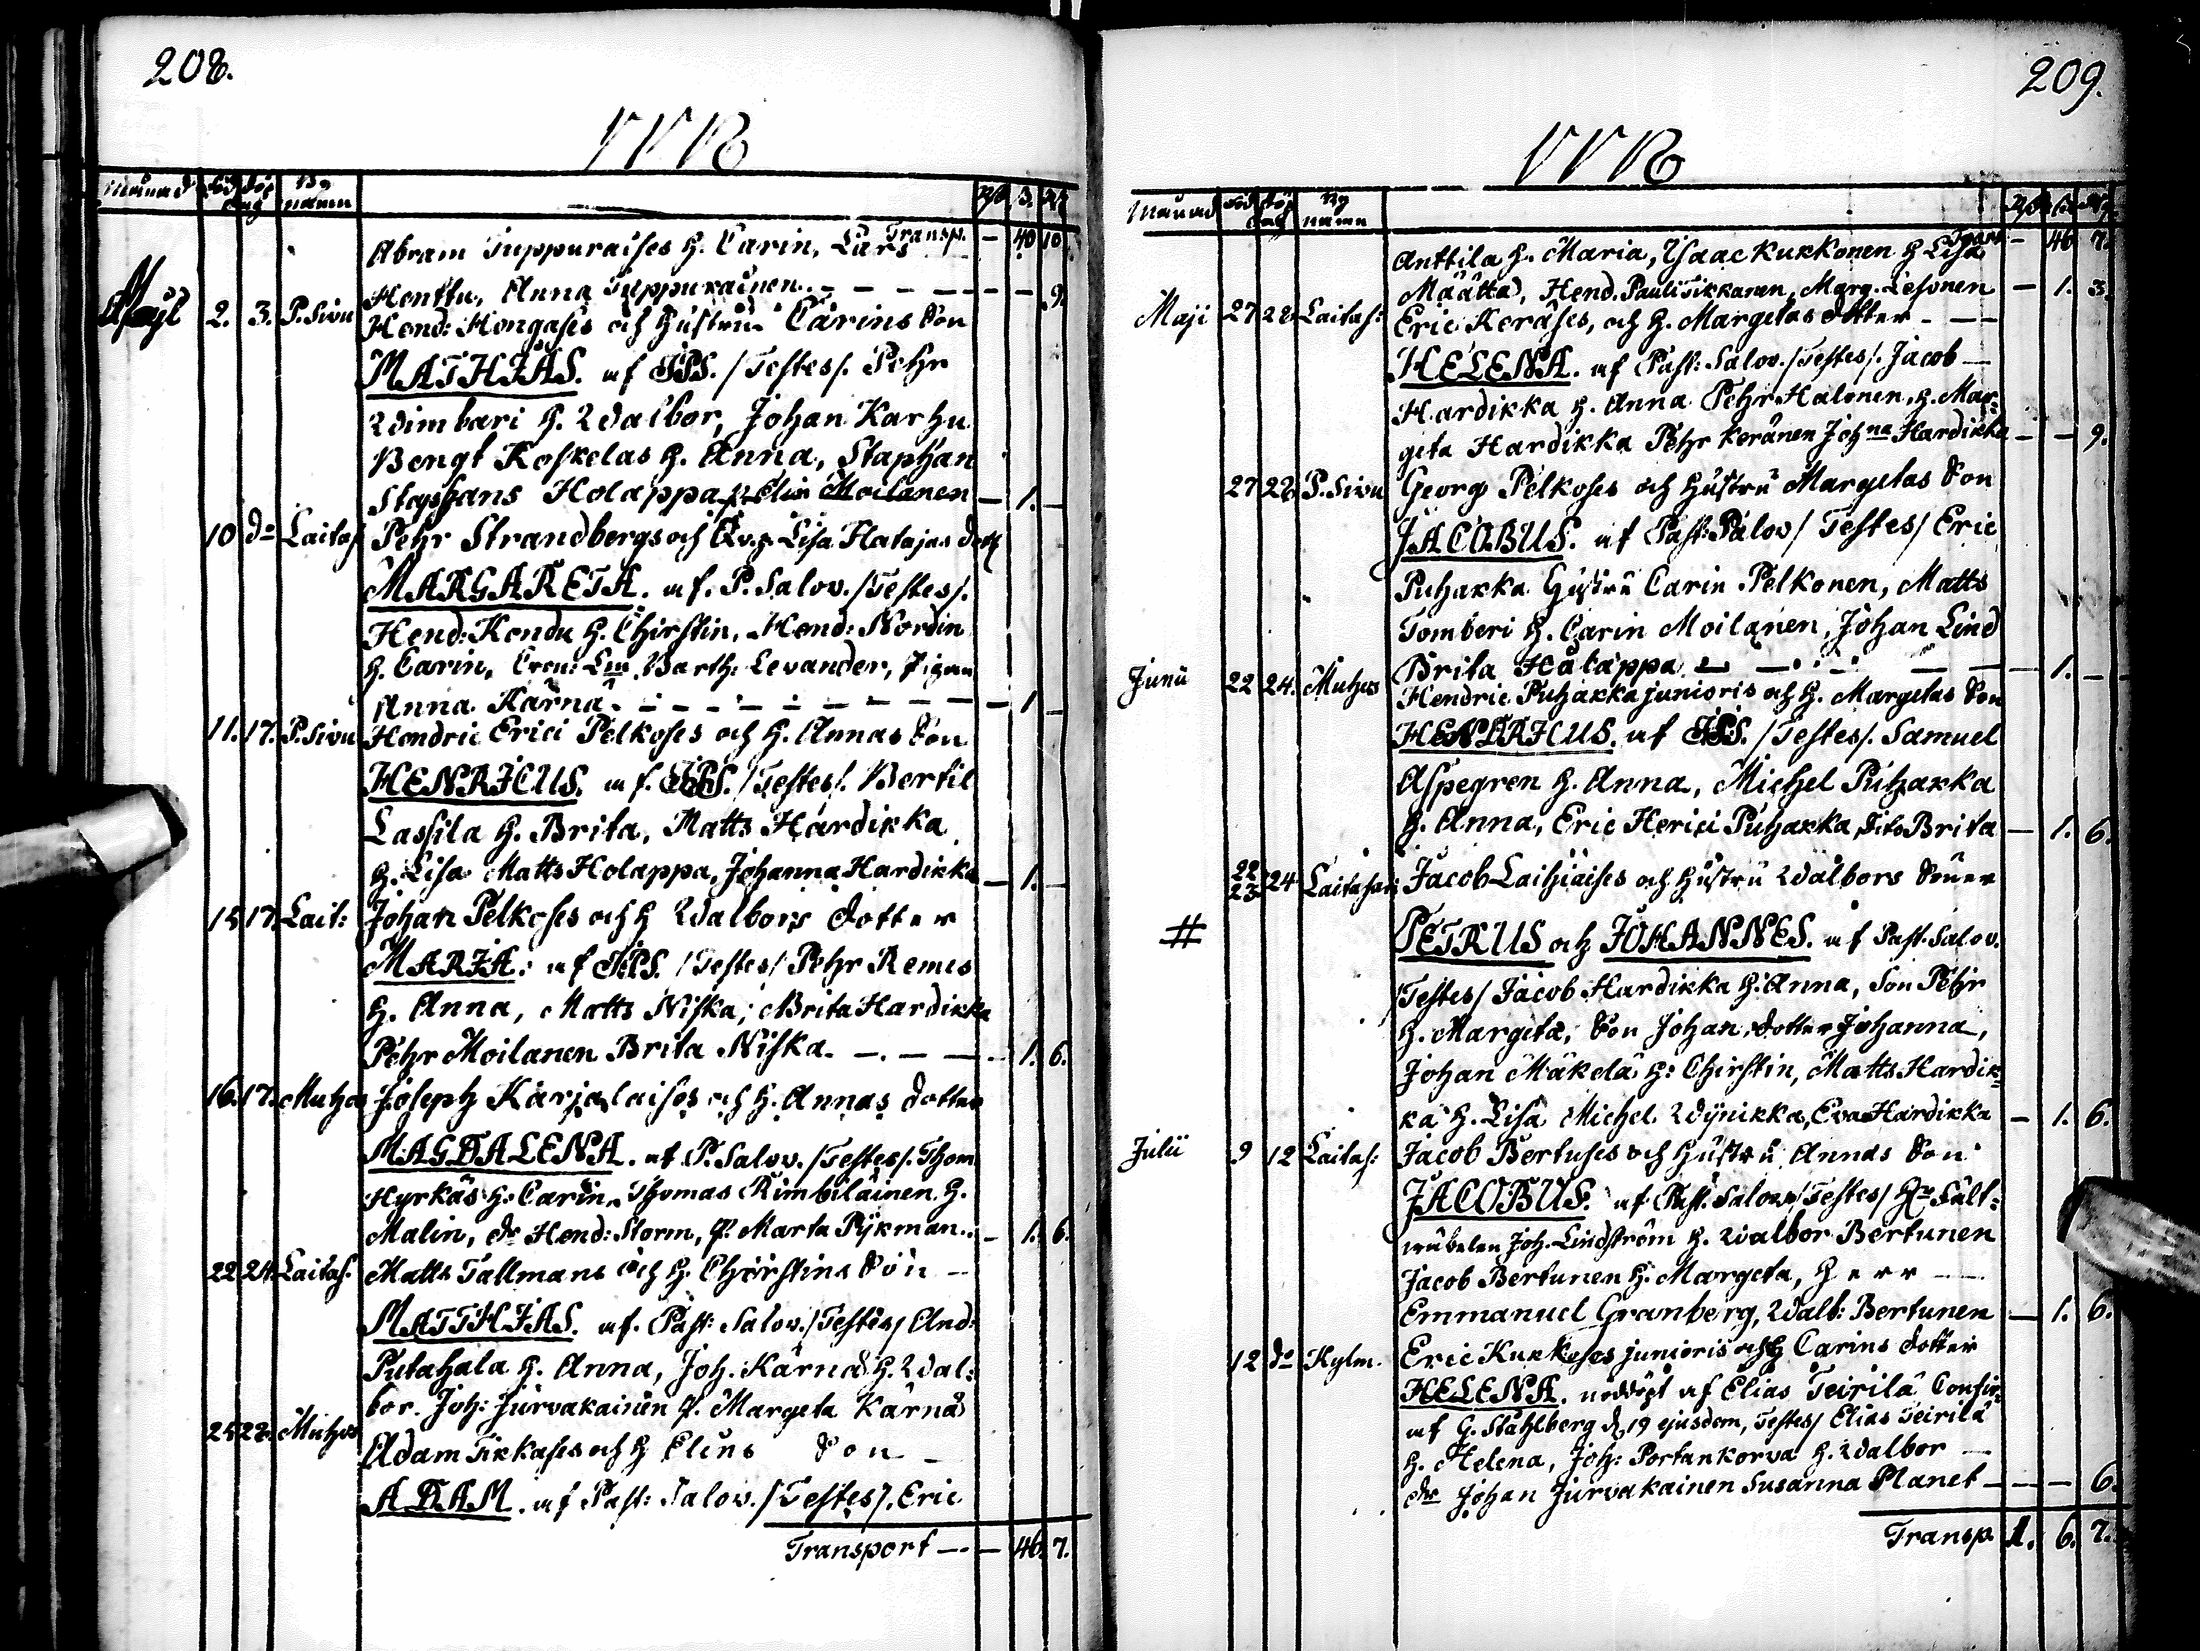 208.
1778
Månad Föd döp dag By namn Rd s. Rs
Abram Tuppuraises h. Carin, Lars Transp. — 40 10
Henttu, Anna Tuppurainen. — — — — 9.
Maji 2. 3. P.Sivu Hend: Hongases och hustrus Carins Son
MATHIAS. af IPS. /Testes/. Pehr
Wimbari h. Walbor, Johan Karhu
Bengt Koskelas h. Anna, Staphan
Staphans Holappa, p. Elin Moilanen — 1. —
10 do Laitas Pehr Strandbergs och Qv.p. Lisa Hatajas dott
MARGARETA. af. P. Salov. /Testes/.
Hend: Kondu h. Chirstin, Hend: Nordin
h. Carin, Cron: Lm Barth: Levander, pigan
Anna Kärnä. — — — — — — 1 —
11. 17. P.Sivu Hendric Erici Pelkoses och h. Annas Son
HENRICUS. af. IPS. /Testes/. Bertil
Lassila h. Brita, Matts Hardikka
h. Lisa Matts Holappa, Johanna Hardikka — 1. —
15 17. Lait: Johan Pelkoses och h Walbors dotter
MARIA. af IPS. /Testes/ Pehr Remes
h. Anna, Matts Niska, Brita Hardikka
Pehr Moilanen Brita Niska. — — — 1. 6.
16. 17. Muhos Joseph Karjalaises och h. Annas dotter
MAGDALENA. af P. Salov. /Testes/. Thom
Hyrkäs h. Carin, Thomas Kimbiläinen h.
Malin, dr Hend: Storm, p. Marta Pykman. — 1. 6.
22 24. Laitas. Matts Tallmans och h. Chirstins Son —
MATTHIAS. af. Past: Salov. /Testes/ And:
Putahala h. Anna, Joh. Kärnä h. Wal:
bor. Joh: Jurvakainen p. Margeta Kärnä
25 28. Muhos Adam Tikkases och h Elins Son —
ADAM. af Past: Salov. /Testes/. Eric
Transport — — 46. 7.
209.
1778
Månad Föd döp dag By namn
Anttila h. Maria, Isaac Kukkonen h Lisa Transp — 46 7.
Määttä, Hend. Pauli Tikkanen, Marg. Lesonen — 1. 3.
Maji 27 28. Laitas: Eric Keräses, och h. Margetas dotter — — —
HELENA. af Past: Salov. /Testes/. Jacob —
Hardikka h. Anna Pehr Halonen, h. Mar:
geta Hardikka Pehr Keränen Johna Hardikka — — 9.
27 28. P.Sivu Georg Pelkoses och hustru Margetas Son
JACOBUS. af Past: Salov /Testes/ Eric
Puhakka hustru Carin Pelkonen, Matts
Tomberi h. Carin Moilanen, Johan Lind
Brita Hålappa — — — — 1. —
Junii 22 24. Muhos Hendric Puhakka junioris och h. Margetas Son
HENDRICUS. af IPS. /Testes/. Samuel
Aspegren h. Anna, Michel Puhakka
h. Anna, Eric Herici Puhakka, dito Brita — 1. 6.
22 23 24 Laitasari Jacob Laihiaises och hustru Walbors Söner
# PETRUS och JOHANNES. af Past. Salov.
/Testes/ Jacob Hardikka h. Anna, Son Pehr
h. Margeta, Son Johan, dotter Johanna,
Johan Mäkelä h: Chirstin, Matts Hardik:
ka h. Lisa Michel Wynikka, Eva Hardikka — 1. 6.
Julii 9 12 Laitas: Jacob Bertuses och hustru Annas Son
JACOBUS. af Past. Salov. /Testes/ Hr Fält:
wäbelen Joh. Lindström h. Walbor Bertunen
Jacob Bertunen h. Margeta, Herr —
Emmanuel Granberg, Walb: Bertunen — 1. 6.
12 do Kylm. Eric Kukkoses junioris och h Carins dotter
HELENA. nöddöpt af Elias Teirilä Confir:
af G. Ståhlberg d. 19 ejusdem, Testes/ Elias Teirilä
h. Helena, Joh: Portankorva h. Walbor —
dr Johan Jurvakainen Susanna Planet — — — 6.
Transp. 1. 6. 7.